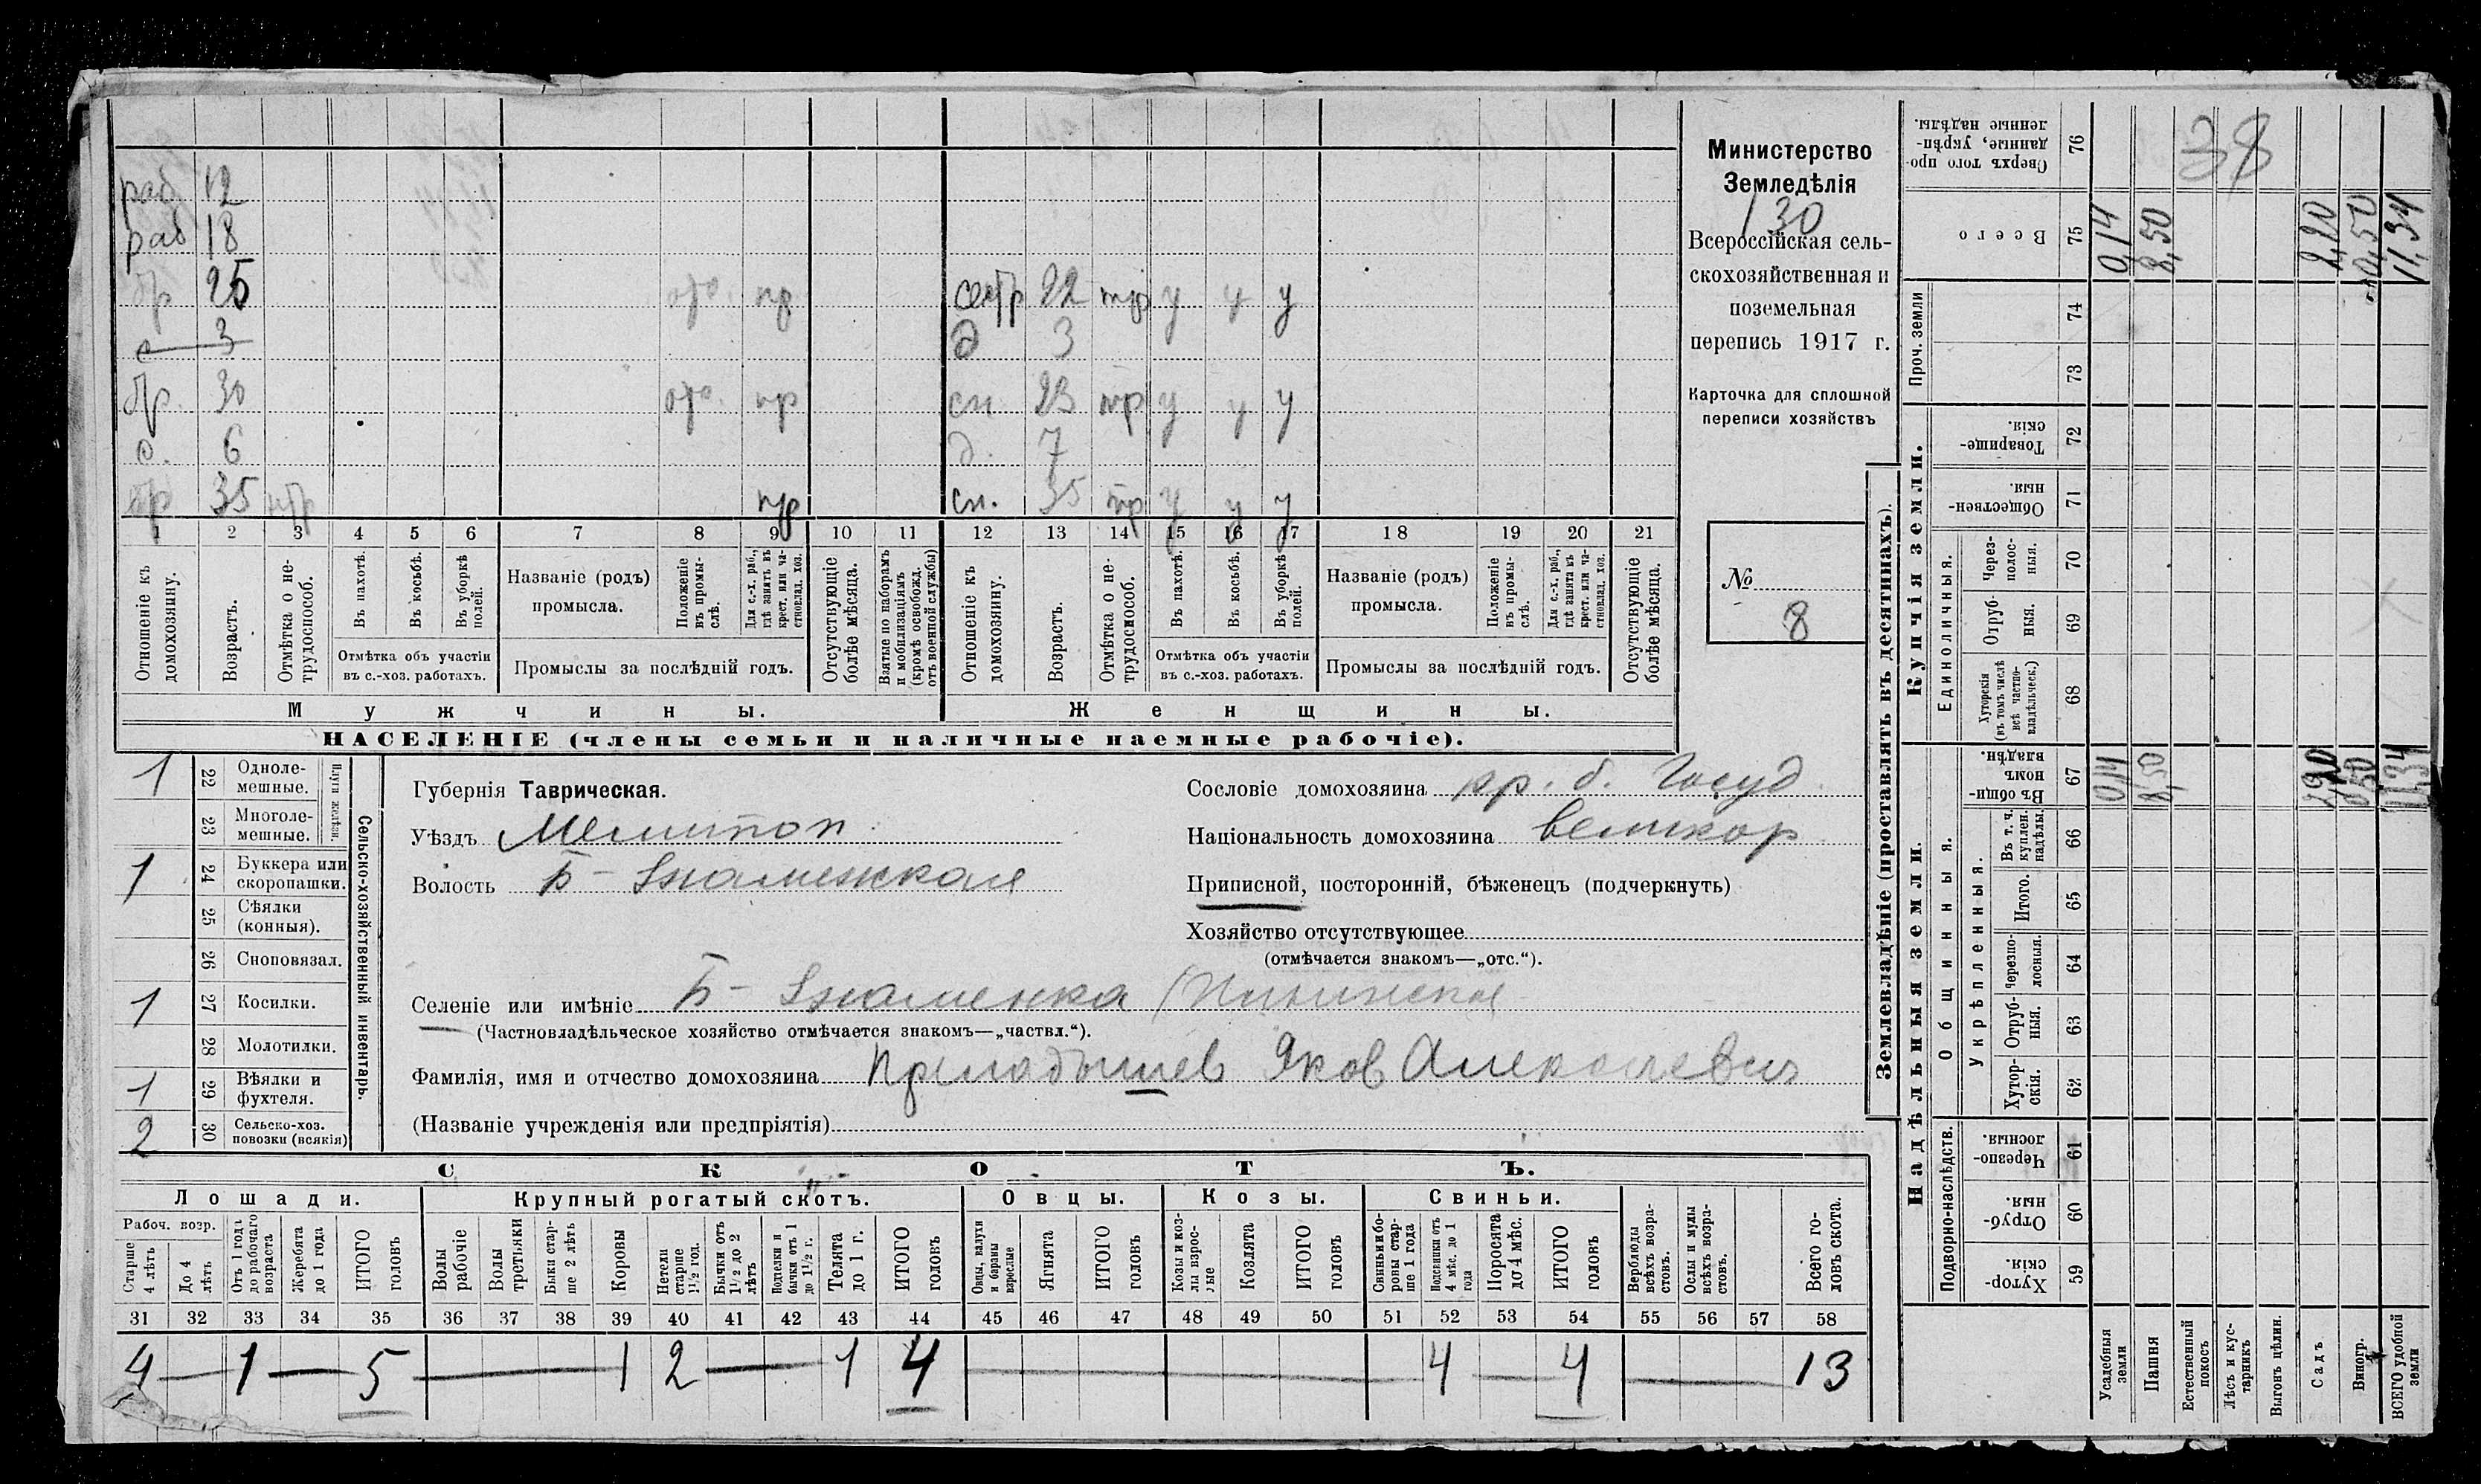 раб 12
раб 18
бр 25 пр сестр 22 тр у у у
с 3 д 3
бр. 30 пр сн 23 тр у у у
с. 6 д. 7
35 пр сн. 35 тр у у у
1 2 3 4 5 6 7 8 9 10 11 12 13 14 15 16 17 18 19 20 21
Отношеніе къ домохозяину.
Возрастъ.
Отмѣтка о не-
трудоспособ.
Въ пахотѣ.
Въ косьбѣ.
Въ уборкѣ
полей.
Отмѣтка объ участіи
въ с.-хоз. работахъ.
Названіе (родъ)
промысла.
Положеніе
въ промы-
слѣ.
Для с.-х. раб.,
гдѣ занятъ въ
крест. или ча-
стновлад. хоз.
Промыслы за послѣдній годъ.
Отсутствующіе
болѣе мѣсяца.
Взятые по наборамъ
и мобилизаціямъ
(кромѣ освобожд.
отъ военной службы)
Отношеніе къ
домохозяину.
Возрастъ.
Отмѣтка о не-
трудоспособ.
Въ пахотѣ.
Въ косьбѣ.
Въ уборкѣ
полей.
Отмѣтка объ участіи
въ с.-хоз. работахъ.
Названіе (родъ)
промысла.
Положеніе
въ промы-
слѣ.
Для с.-х. раб.,
гдѣ занята въ
крест. или ча-
стновлад. хоз.
Промыслы за послѣдній годъ.
Отсутствующіе
болѣе мѣсяца.
Мужчины.
Женщины.
НАСЕЛЕНІЕ (члены семьи и наличные наемные рабочіе).
Министерство
Земледѣлія
130
Всероссійская сель-
скохозяйственная и
поземельная
перепись 1917 г.
Карточка для сплошной
переписи хозяйствъ
№
8
1 22 Одноле-
мешные.
23 Многоле-
мешные.
Плуги желѣзн.
1 24 Буккера или
скоропашки.
25 Сѣялки
(конныя).
26 Сноповязал.
1 27 Косилки.
28 Молотилки.
1 29 Вѣялки и
фухтеля.
2 30 Сельско-хоз.
повозки (всякія)
Сельско-хозяйственный инвентарь.
Губернія Таврическая.
Уѣздъ Мелитоп.
Волость Б-Знаменская
Сословіе домохозяина кр. б. Госуд.
Національность домохозяина великор
Приписной, посторонній, бѣженецъ (подчеркнуть)
Хозяйство отсутствующее
(отмѣчается знакомъ—„отс.“).
Селеніе или имѣніе Б-Знаменка
(Частновладѣльческое хозяйство отмѣчается знакомъ—„частвл.“).
Фамилія, имя и отчество домохозяина Приладышев Яков Алексеевич
(Названіе учрежденія или предпріятія)
СКОТЪ.
Лошади. Крупный рогатый скотъ. Овцы. Козы. Свиньи.
Рабоч. возр.
Старше
4 лѣтъ
До 4
лѣтъ
Отъ 1 года
до рабочаго
возраста
Жеребята
до 1 года
ИТОГО
головъ
Волы
рабочіе
Волы
третьяки
Быки стар-
ше 2 лѣтъ
Коровы
Нетели
старше
1½ год.
Бычки отъ
1½ до 2
лѣтъ
Подтелки и
бычки отъ 1
до 1½ г.
Телята
до 1 г.
ИТОГО
головъ
Овцы, валухи
и бараны
взрослые
Ягнята
ИТОГО
головъ
Козы и коз-
лы взрос-
лые
Козлята
ИТОГО
головъ
Свиньи и бо-
ровы стар-
ше 1 года
Подсвинки отъ
4 мѣс. до 1
года
Поросята
до 4 мѣс.
ИТОГО
головъ
Верблюды
всѣхъ возра-
стовъ.
Ослы и мулы
всѣхъ возра-
стовъ.
Всего го-
ловъ скота.
31 32 33 34 35 36 37 38 39 40 41 42 43 44 45 46 47 48 49 50 51 52 53 54 55 56 57 58
4 — 1 — 5 — 1 2 — 1 4 — 4 — 4 — 13
Землевладѣніе (проставлять въ десятинахъ).
Надѣльныя земли.
Купчія земли.
Проч. земли
Подворно-наслѣдств.
Общинныя.
Укрѣпленныя.
Единоличныя.
Хутор-
скія. 59
Отруб-
ныя. 60
Черезпо-
лосныя. 61
Хутор-
скія. 62
Отруб-
ныя. 63
Черезпо-
лосныя. 64
Итого. 65
Въ т. ч.
куплен.
надѣлы. 66
Въ общи-
номъ
владѣн. 67
Хуторскія
(въ томъ числѣ
всѣ частно-
владѣльческ.) 68
Отруб-
ныя. 69
Через-
полос-
ныя. 70
Обществен-
ныя. 71
Товарище-
скія. 72
73
74
Всего 75
Сверхъ того про-
данные, укрѣп-
ленные надѣлы. 76
38
Усадебная
земля 0,14 0,14
Пашня 8,50 8,50
Естественный
покосъ
Лѣсъ и кус-
тарникъ
Выгонъ цѣлин.
Садъ 2,20 2,20
Виногр. 0,50 0,50
ВСЕГО удобной
земли 11,34 11,34